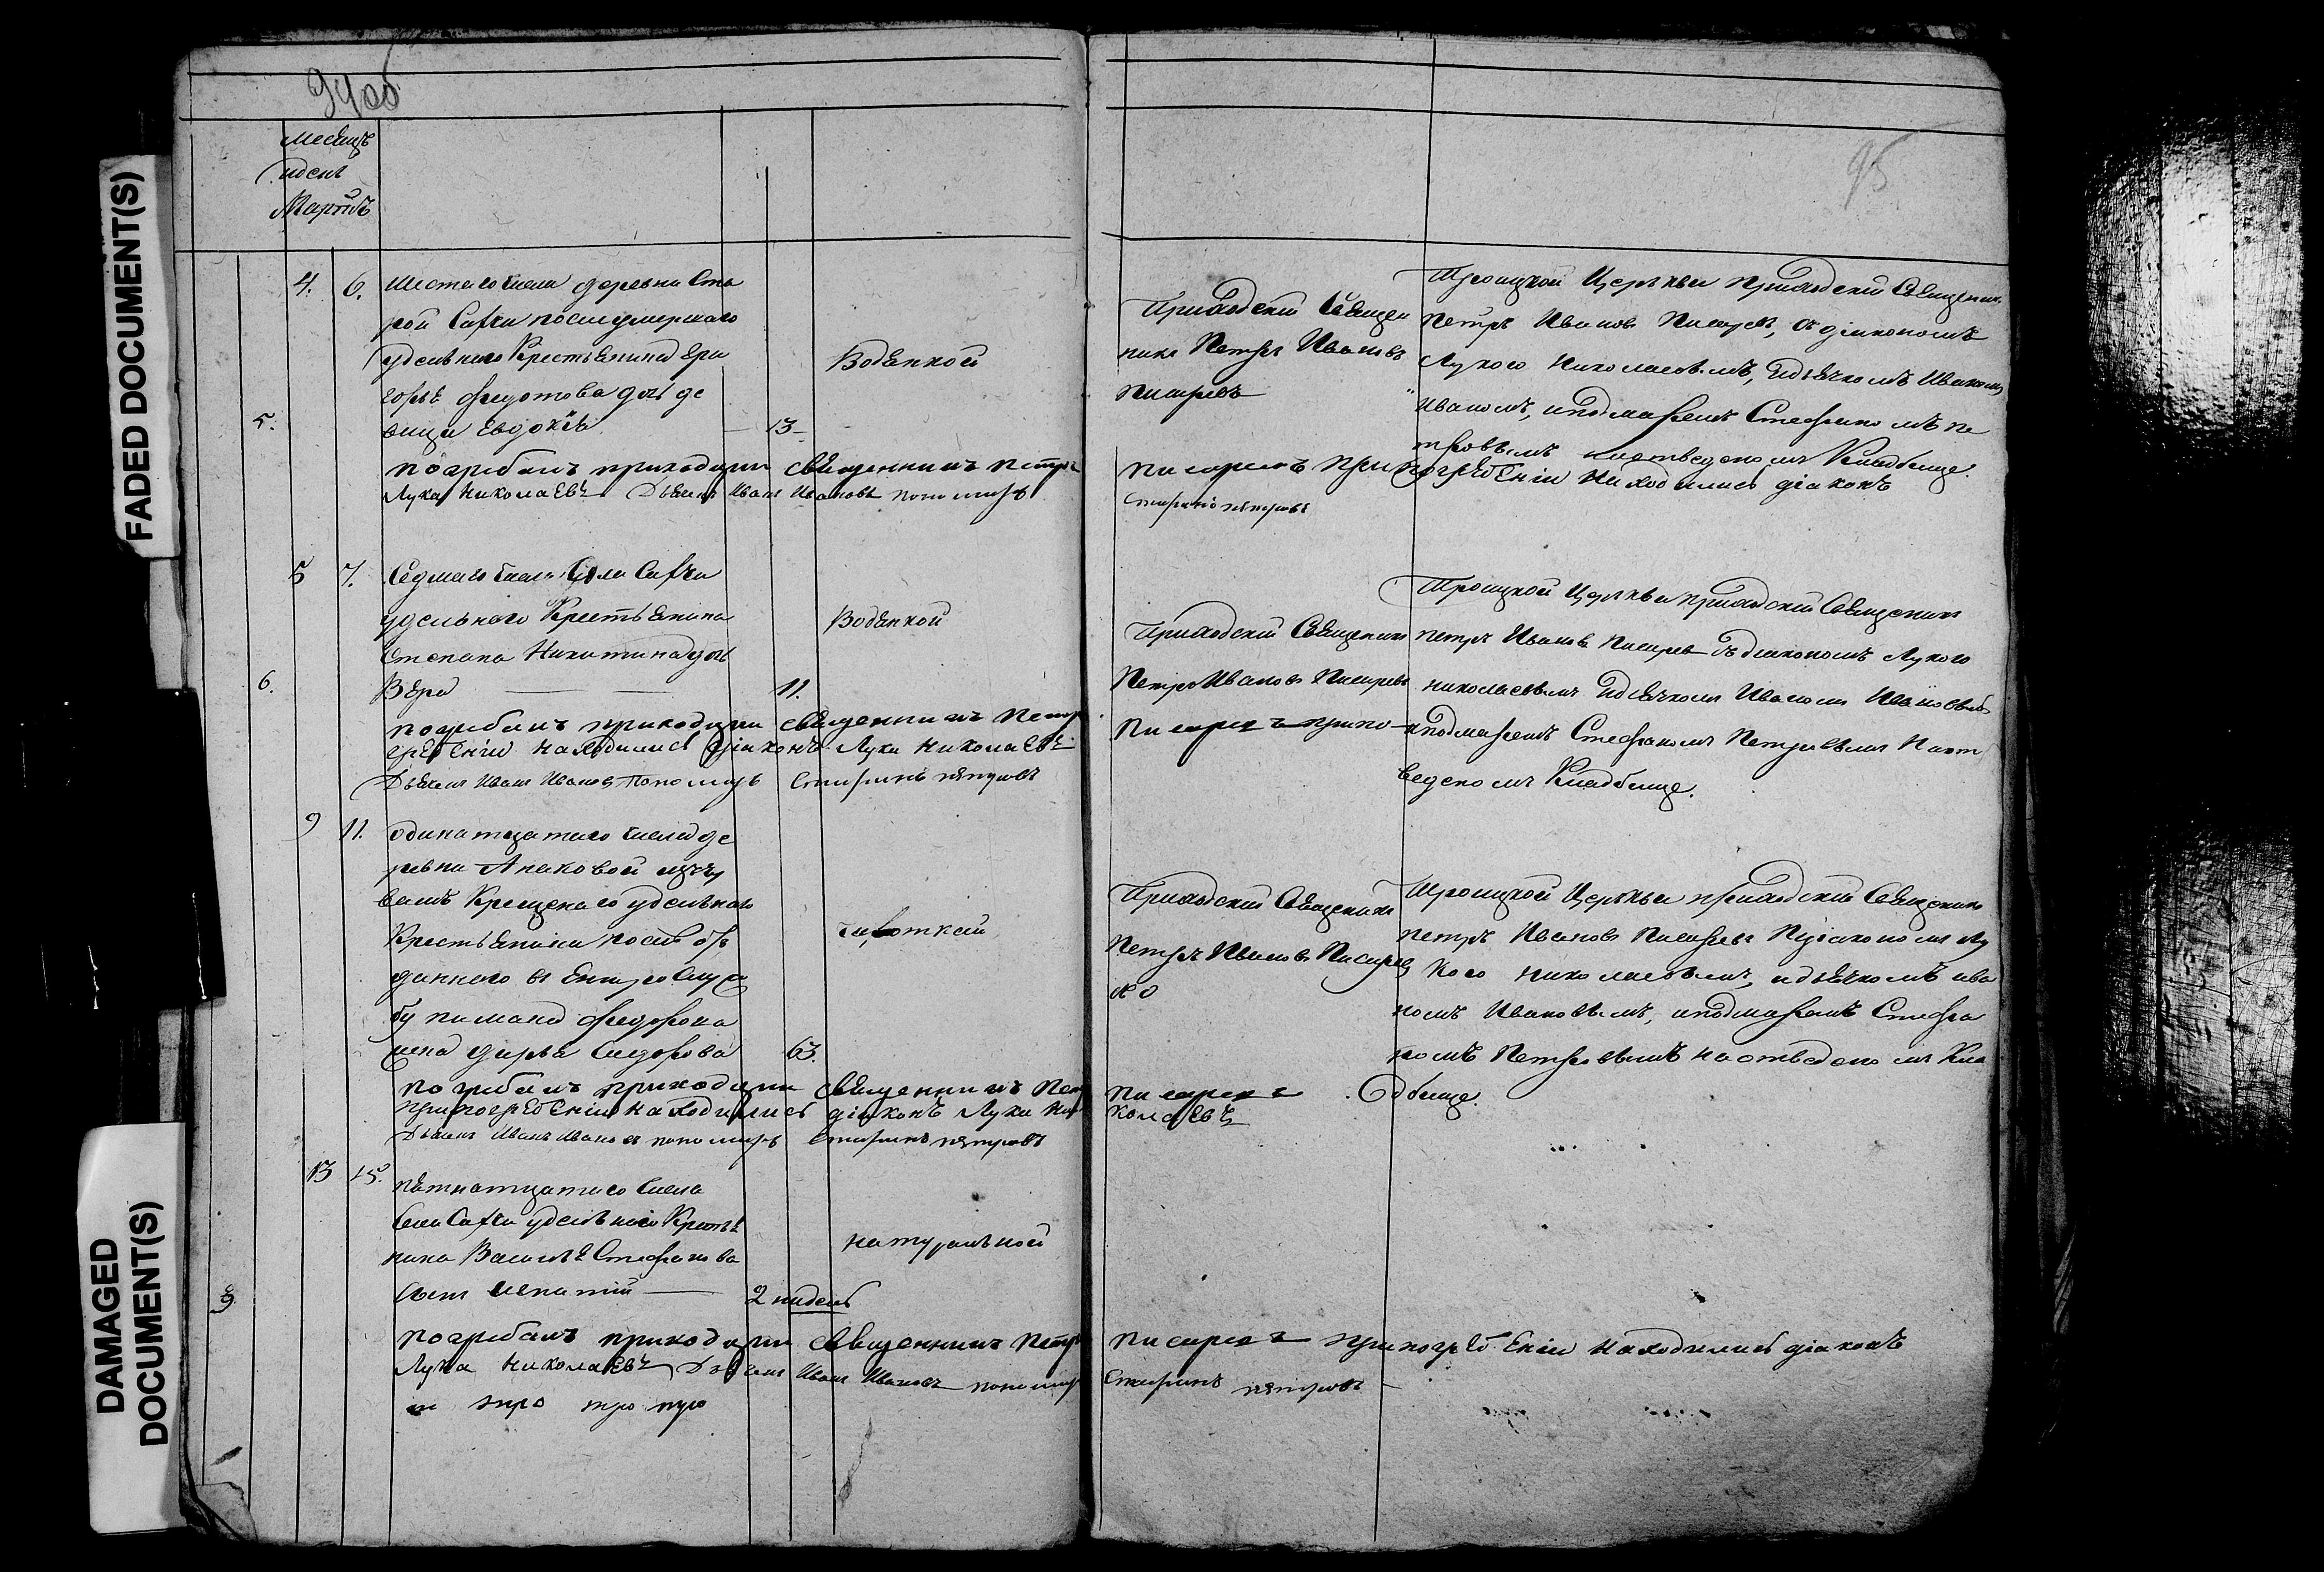 FADED DOCUMENT(S)
DAMAGED
DOCUMENT(S)
94об
95
месецъ
идень
Мартъ
4. 6. шестаго числа деревни Ста
рой Сахчи после умершаго
удельнаго Крестьенина Гри
горье Федотова дочь де
5. вица Евдокея 13
Воденкой
погребалъ приходцки свещенникъ Петръ
Лука Николаевъ Дьячекъ Иванъ Ивановъ пономарь
Приходскій Свещен
никъ Петръ Ивановъ
Писаревъ
Троицкой Церькви приходскій Свещеник
Петръ Ивановъ Писаревъ, съ діакономъ
Лукою Николаевымъ, идьячкомъ Иваномъ
Ивановымъ, ипономаремъ Стефаномъ Пе
тровымъ наотведеномъ Кладбище.
Писаревъ при погребеніи находились діаконъ
Стефанъ петровъ
5 7. Седмаго числа Села Сахчи
удельнаго Крестьенина
Степана Никитина дочь
6. Вера 11.
Воденкой
погребалъ приходцки свещенникъ Петръ
гребеніи находились діаконъ Лука Николаевъ
Дьячекъ Иванъ Ивановъ Пономарь Стефанъ петровъ
Приходскій Свещеникъ
Петръ Ивановъ Писаревъ
Писаревъ припо
Троицкой Церькви приходскій Свещеникъ
петръ Ивановъ Писаревъ съ діакономъ Лукою
николаевымъ идьячкомъ Иваномъ Ивановымъ
ипономаремъ Стефаномъ Петровымъ Наот
веденомъ Кладбище.
9 11. одинатцатаго числа де
ревни Апаковой изчу
вашъ Крещенаго удельнаго
Крестьенина после от
даннаго въ Егирскую слу
бу Романа Федорова
жена Дарья Сидорова 63.
чехоткай
погребалъ приходцки свещенникъ Петръ
припогребеніи находились діаконъ Лука Ни
Дьячекъ Иванъ Ивановъ пономарь Стефанъ петровъ
Приходскій Свещеникъ
Петръ Ивановъ Писаревъ
Писаревъ
колаевъ
Троицкой Церькви приходскій Свещеникъ
петръ Ивановъ Писаревъ Здіакономъ Лу
кою николаевымъ, идьячкомъ ива
номъ Ивановымъ, ипономаремъ Стефа
номъ Петровымъ наотведеномъ Кла
дбище.
13 15. пятнатцатаго числа
Села Сахчи удельнаго Крестье
нина Василье Стефанова
9 сынъ Игнатій 2 нидель
натуральной
погребалъ приходцки свещенникъ Петръ
Лука Николаевъ Дьячекъ Иванъ Ивановъ пономарь
Писаревъ припогребеніи находились діаконъ
Стефанъ петровъ